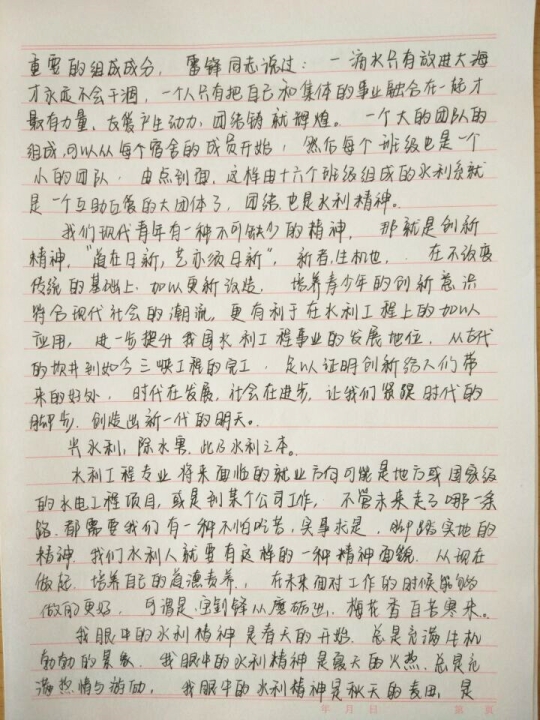 重要的组成成分，雷锋同志说过：一滴水只有放进大海
才永远不会干涸，一个人只有把自己和集体的事业融合在一起才
最有力量，友爱产生动力，团结铸就辉煌。一个大的团队的
组成，可以从每个宿舍的成员开始，然后每个班级也是一个
小的团队，由点到面，这样由十六个班级组成的水利系就
是一个互助友爱的大团体了，团结也是水利精神。
我们现代青年有一种不可缺少的精神，那就是创新
精神，“道在日新，艺亦须日新”，新者，生机也，在不改变
传统的基础上，加以更新改造，培养青少年的创新意识
符合现代社会的潮流，更有利于在水利工程上的加以
应用，进一步提升我国水利工程事业的发展地位，从古代
的坎井到如今三峡工程的完工，足以证明创新给人们带
来的好处，时代在发展，社会在进步，让我们紧跟时代的
脚步，创造出新一代的明天。
兴水利，除水害，此乃水利之本。
水利工程专业将来面临的就业方向可能是地方或国家级
的水电工程项目，或是到某个公司工作，不管未来走了哪一条
路，都需要我们有一种不怕吃苦，实事求是，脚踏实地的
精神，我们水利人就要有这样的一种精神面貌，从现在
做起，培养自己的道德素养，在未来面对工作的时候能够
做的更好，可谓是，宝剑锋从磨砺出，梅花香自苦寒来。
我眼中的水利精神是春天的开始，总是充满生机
勃勃的景象，我眼中的水利精神是夏天的火热，总是充
满热情与激动，我眼中的水利精神是秋天的麦田，是
年 月 日 第 页